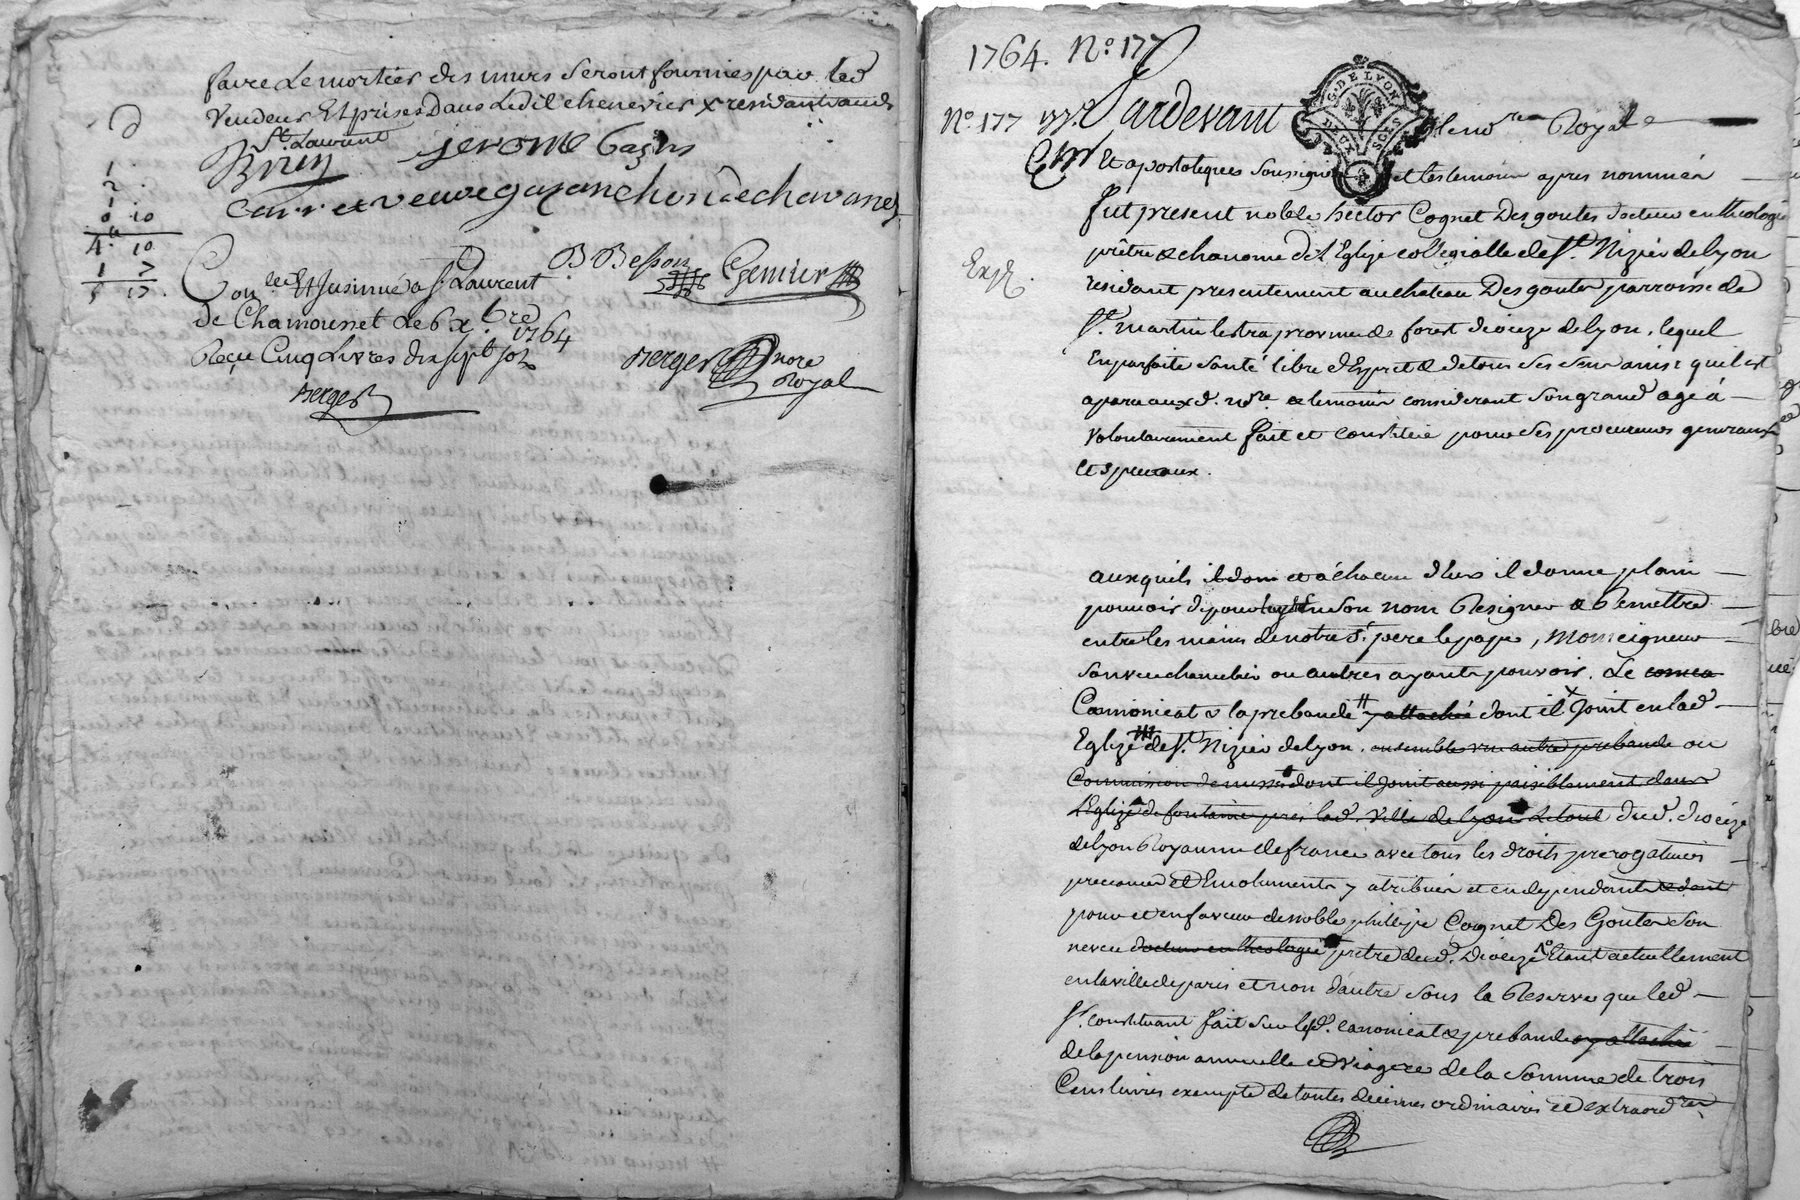 faire Le mortier des murs seront fournies par led
vendeur Et prises Dans Ledit chenevier x residant aud
St. Laurent
jerome
Carret veuve gazanchon de chavanes
1
2
1
0 10
4. 10
1 7
5 17.
B Besson
Grenier
Con.lee Et Insinué a St Laurent
De Chamousset Le 6 x.bre
1764
Reçu Cinq Livres dix sept sols
Berger
Berger nore
Royal
1764. No. 177
No. 177
Pardevant
G. DE LYON
DEUX SOLS
le no.re Royal
Et apostoliques soussigné et les temoins apres nommés
fut present noble hector Cognet Des goutes docteur en theologie
prêtre & chanoine de l'Eglize collegialle de St. Nizier de Lyon
residant presentement au chateau Des goutes parroisse de
St. martin lestra province de forest dioceze de lyon, lequel
En parfaite santé libre d'Esprit & de tous ses sens ainsi quil est
aparu auxd. nore. & temoins considerant son grand age a
volontairement fait et constitué pour ses procureurs generaux
et speciaux.
Exp.
auxquels il don et a chacun d'eux il donne plain
pouvoir de pour luy et en son nom Resigner & Remettre
entre les mains de notre St. pere le pape, Monseigneur
son vice chancelier ou autres ayants pouvoir. Le
Cannonicat & la prebande y attachée dont il Jouit en lad.
Eglize de St. Nizier de Lyon. ensemble une autre prebande ou
Commission de messes dont il Jouit aussi paisiblement dans
l'Eglize de fontaine près lad. Ville de Lyon Le tout dud. dioceze
de Lyon Royaume de france avec tous les droits prerogatives
preeances et Emoluments y atribués et en dependants
pour et en faveur de noble phillipe Cognet Des Goutes son
neveu docteur en theologie prêtre dud. Dioceze Etant actuellement
en la ville de paris et non d'autre sous la Reserve que led
Sr. constituant fait sur lesd. canonicat & prebande y attachée
de la pension annuelle et viagere de la somme de trois
Cens livres exempte de toutes decimes ordinaires et extraord.res